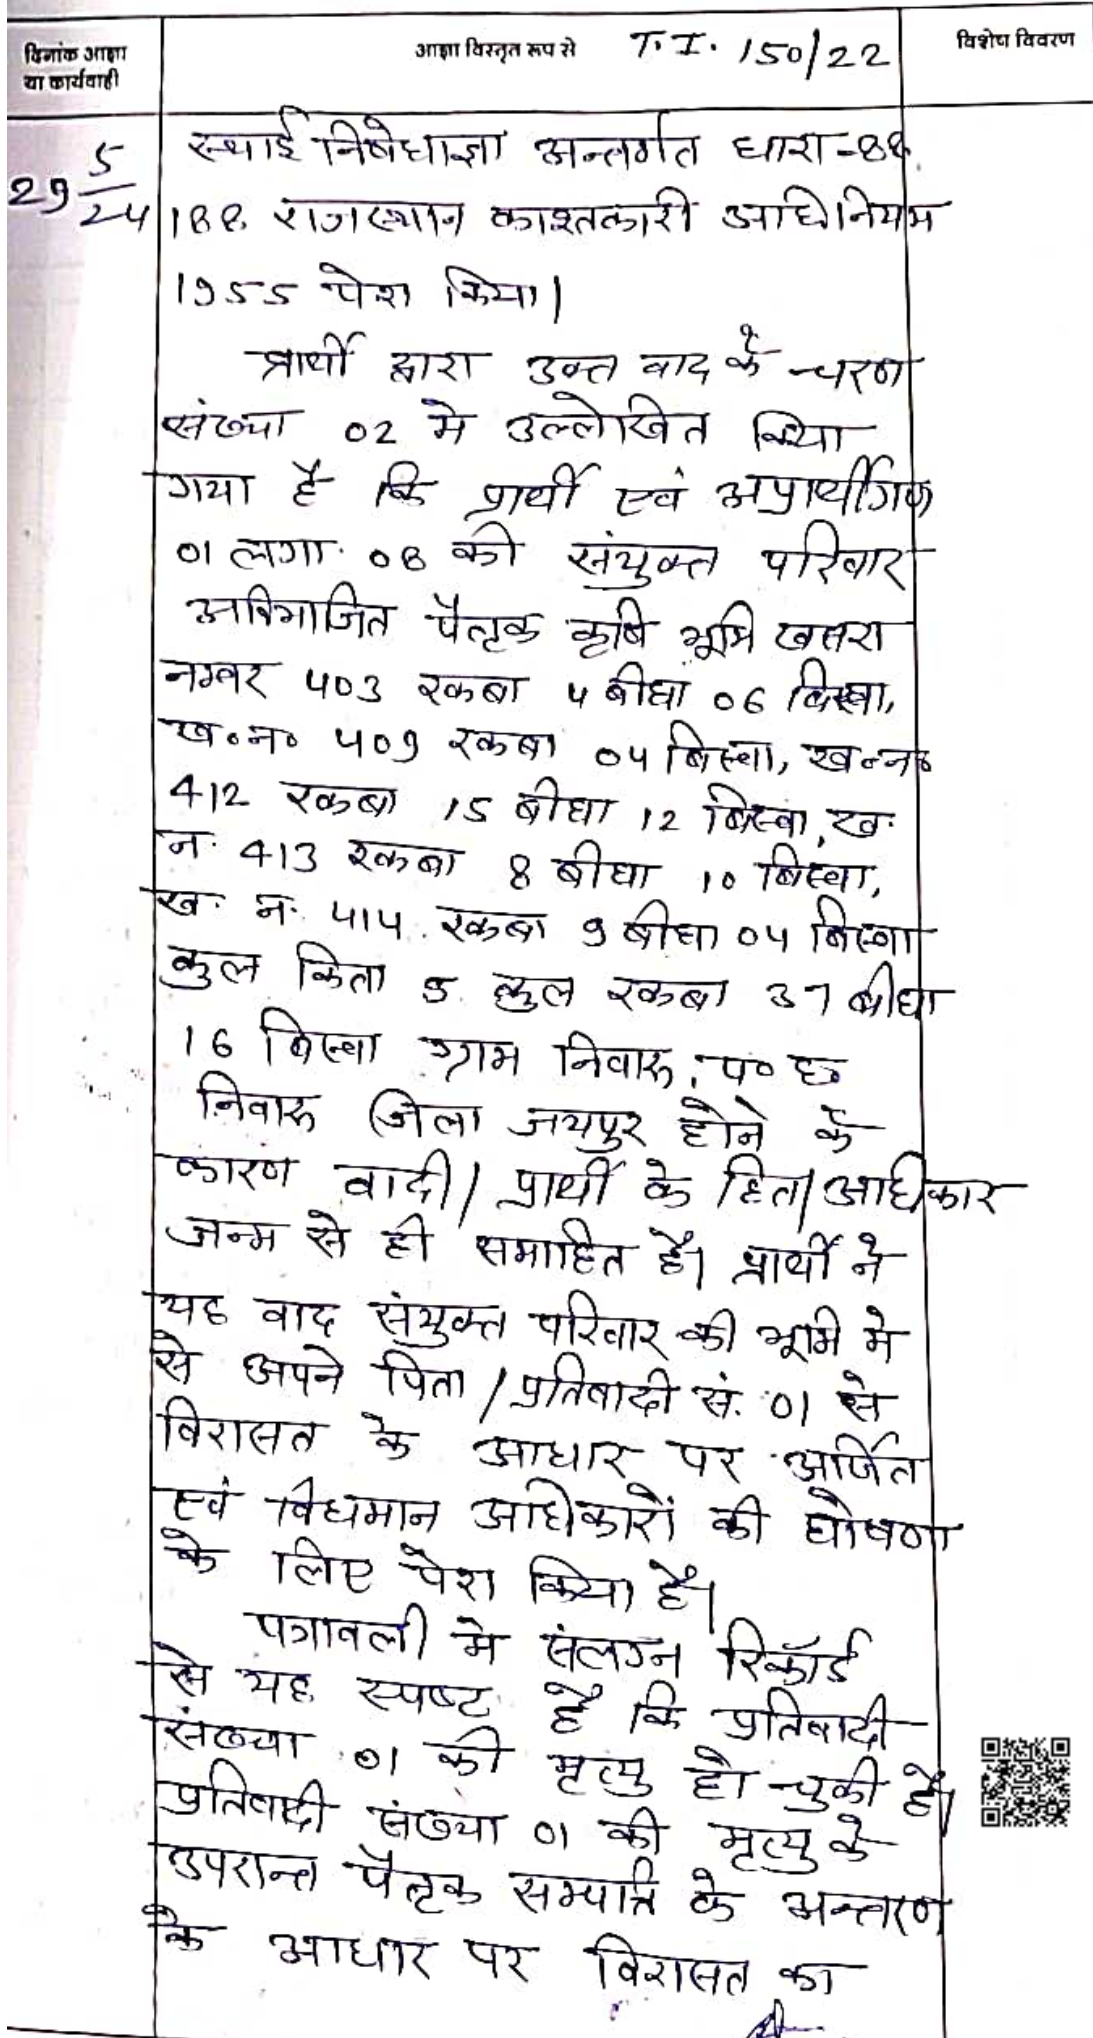 दिनांक आज्ञा
या कार्यवाही
आज्ञा विस्तृत रूप से T.I. 150/22
विशेष विवरण
29 5/24
स्थाई निषेधाज्ञा अन्तर्गत धारा-88,
188 राजस्थान काश्तकारी अधिनियम
1955 पेश किया।
प्रार्थी द्वारा उक्त वाद के चरण
संख्या 02 मे उल्लेखित किया
गया है कि प्रार्थी एवं अप्रार्थीगण
01 लगा. 08 की संयुक्त परिवार
अविभाजित पैतृक कृषि भूमि खसरा
नम्बर 403 रकबा 4 बीघा 06 बिस्वा,
ख०न० 409 रकबा 04 बिस्वा, ख०न०
412 रकबा 15 बीघा 12 बिस्वा, ख.
न. 413 रकबा 8 बीघा 10 बिस्वा,
ख. न. 414 रकबा 9 बीघा 04 बिस्वा
कुल किता 5 कुल रकबा 37 बीघा
16 बिस्वा ग्राम निवारू, प० ह०
निवारू जिला जयपुर होने के
कारण वादी/प्रार्थी के हित/अधिकार
जन्म से ही समाहित है। प्रार्थी ने
यह वाद संयुक्त परिवार की भूमि मे
से अपने पिता/प्रतिवादी सं. 01 से
विरासत के आधार पर अर्जित
एवं विधमान अधिकारों की घोषणा
के लिए पेश किया है।
पत्रावली मे संलग्न रिकॉर्ड
से यह स्पष्ट है कि प्रतिवादी
संख्या 01 की मृत्यु हो चुकी है।
प्रतिवादी संख्या 01 की मृत्यु के
उपरान्त पैतृक सम्पत्ति के अन्तरण
के आधार पर विरासत का